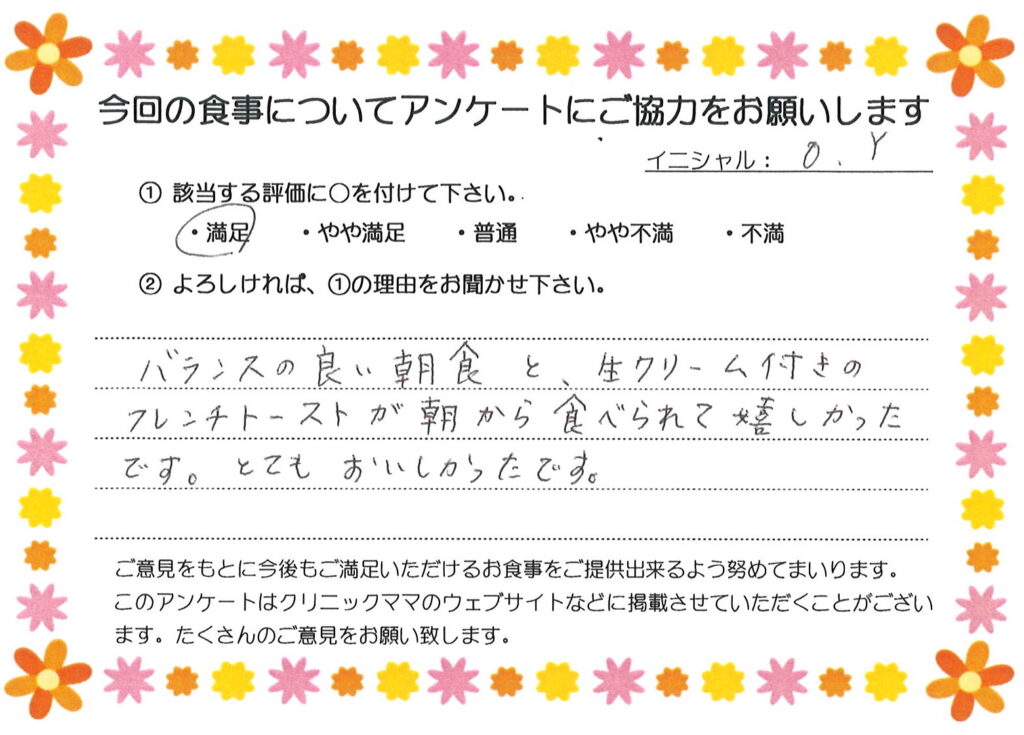 今回の食事についてアンケートにご協力をお願いします
イニシャル: O.Y
① 該当する評価に○を付けて下さい。
・満足 ・やや満足 ・普通 ・やや不満 ・不満
② よろしければ、①の理由をお聞かせ下さい。
バランスの良い朝食と、生クリーム付きの
フレンチトーストが朝から食べられて嬉しかった
です。とてもおいしかったです。
ご意見をもとに今後もご満足いただけるお食事をご提供出来るよう努めてまいります。
このアンケートはクリニックママのウェブサイトなどに掲載させていただくことがござい
ます。たくさんのご意見をお願い致します。